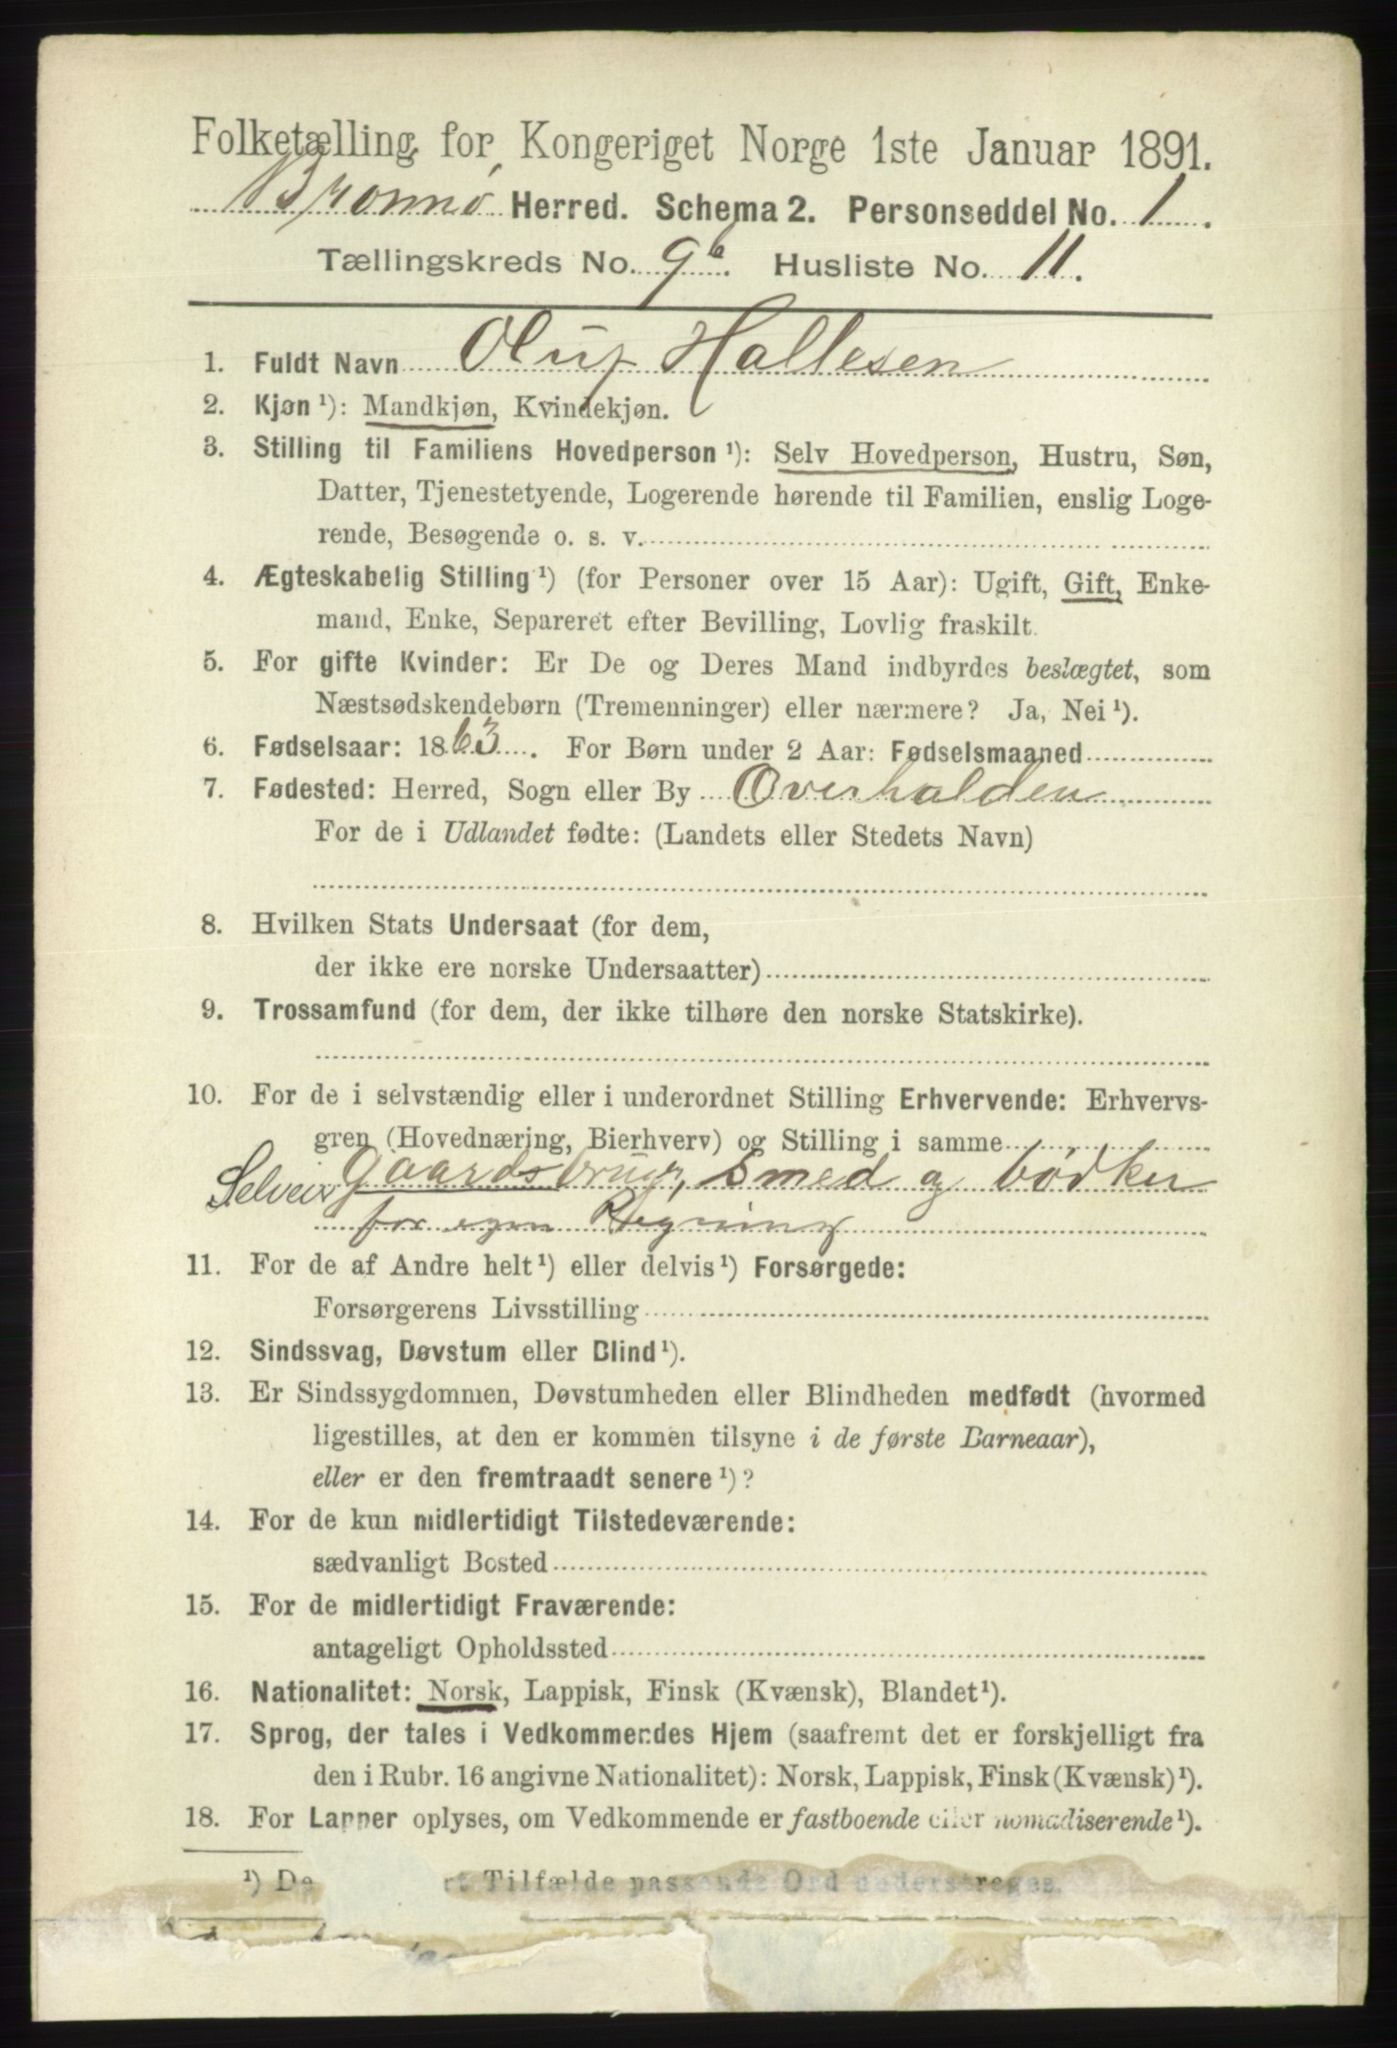 Folketælling for Kongeriget Norge 1ste Januar 1891.
Brønnø Herred. Schema 2. Personseddel No. 1.
Tællingskreds No. 9b. Husliste No. 11.
1. Fuldt Navn Oluf Hallesen
2. Kjøn¹): Mandkjøn, Kvindekjøn.
3. Stilling til Familiens Hovedperson¹): Selv Hovedperson, Hustru, Søn,
Datter, Tjenestetyende, Logerende hørende til Familien, enslig Loge-
rende, Besøgende o. s. v.
4. Ægteskabelig Stilling¹) (for Personer over 15 Aar): Ugift, Gift, Enke-
mand, Enke, Separeret efter Bevilling, Lovlig fraskilt.
5. For gifte Kvinder: Er De og Deres Mand indbyrdes beslægtet, som
Næstsødskendebørn (Tremenninger) eller nærmere? Ja, Nei¹).
6. Fødselsaar: 1863. For Børn under 2 Aar: Fødselsmaaned
7. Fødested: Herred, Sogn eller By Overhalden
For de i Udlandet fødte: (Landets eller Stedets Navn)
8. Hvilken Stats Undersaat (for dem,
der ikke ere norske Undersaatter)
9. Trossamfund (for dem, der ikke tilhøre den norske Statskirke).
10. For de i selvstændig eller i underordnet Stilling Erhvervende: Erhvervs-
gren (Hovednæring, Bierhverv) og Stilling i samme
Selveier Gaardsbrug, Smed og bødker
for egen Regning
11. For de af Andre helt¹) eller delvis¹) Forsørgede:
Forsørgerens Livsstilling
12. Sindssvag, Døvstum eller Blind¹).
13. Er Sindssygdommen, Døvstumheden eller Blindheden medfødt (hvormed
ligestilles, at den er kommen tilsyne i de første Barneaar),
eller er den fremtraadt senere¹)?
14. For de kun midlertidigt Tilstedeværende:
sædvanligt Bosted
15. For de midlertidigt Fraværende:
antageligt Opholdssted
16. Nationalitet: Norsk, Lappisk, Finsk (Kvænsk), Blandet¹).
17. Sprog, der tales i Vedkommendes Hjem (saafremt det er forskjelligt fra
den i Rubr. 16 angivne Nationalitet): Norsk, Lappisk, Finsk (Kvænsk)¹).
18. For Lapper oplyses, om Vedkommende er fastboende eller nomadiserende¹).
¹) De Tilfælde passende Ord understreges.